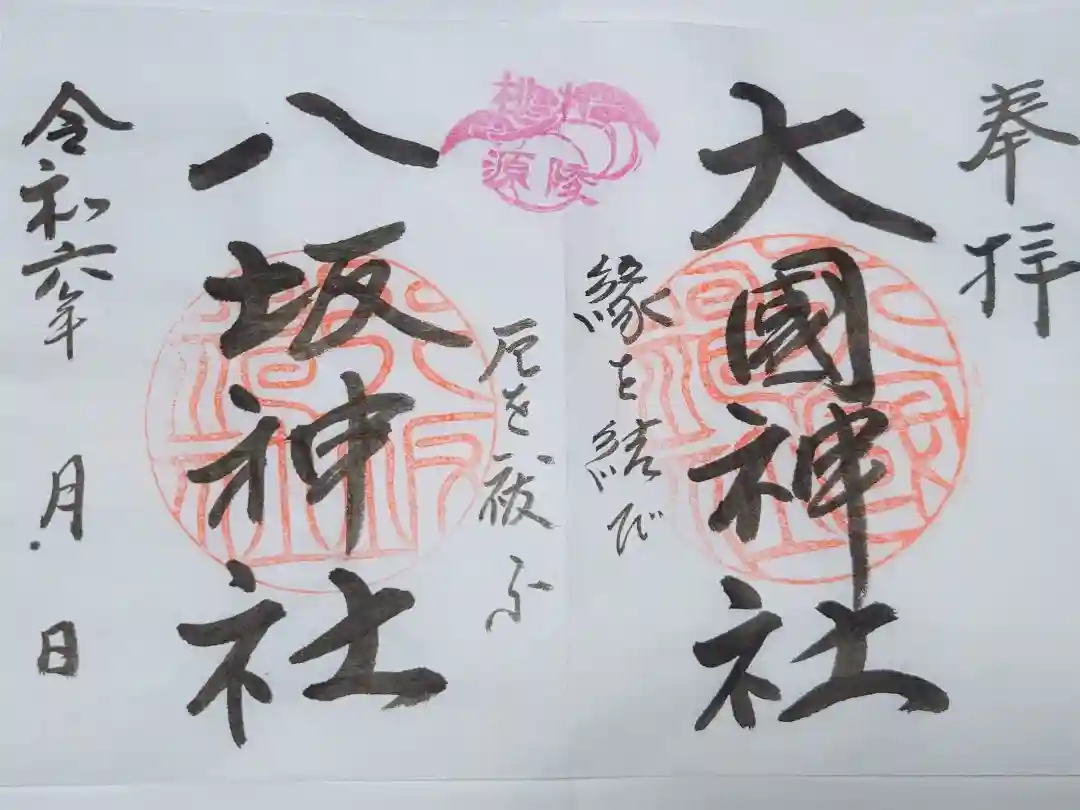 奉拝
大國神社
縁を結び
桃林
源陵
厄を祓ふ
八坂神社
令和六年 月 日